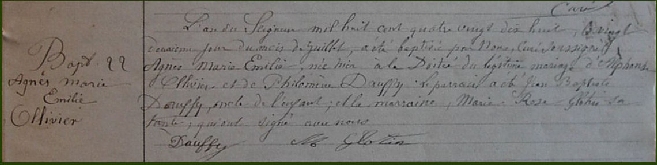 Curé
Bapt 22
Agnès Marie
Emilie
Ollivier
L'an du Seigneur mil huit cent quatre vingt dix huit, & vingt
deuxième jour du mois de juillet, a été baptisée par Nous, Curé soussigné
Agnès Marie Emilie, née hier à la du légitime mariage d'Alphonse
Ollivier et de Philomène Dauffy. Le parrain a été Jean Baptiste
Dauffy, oncle de l'enfant; et la marraine, Marie Rose Glotin sa
tante; qui ont signé avec nous
Dauffy M Glotin